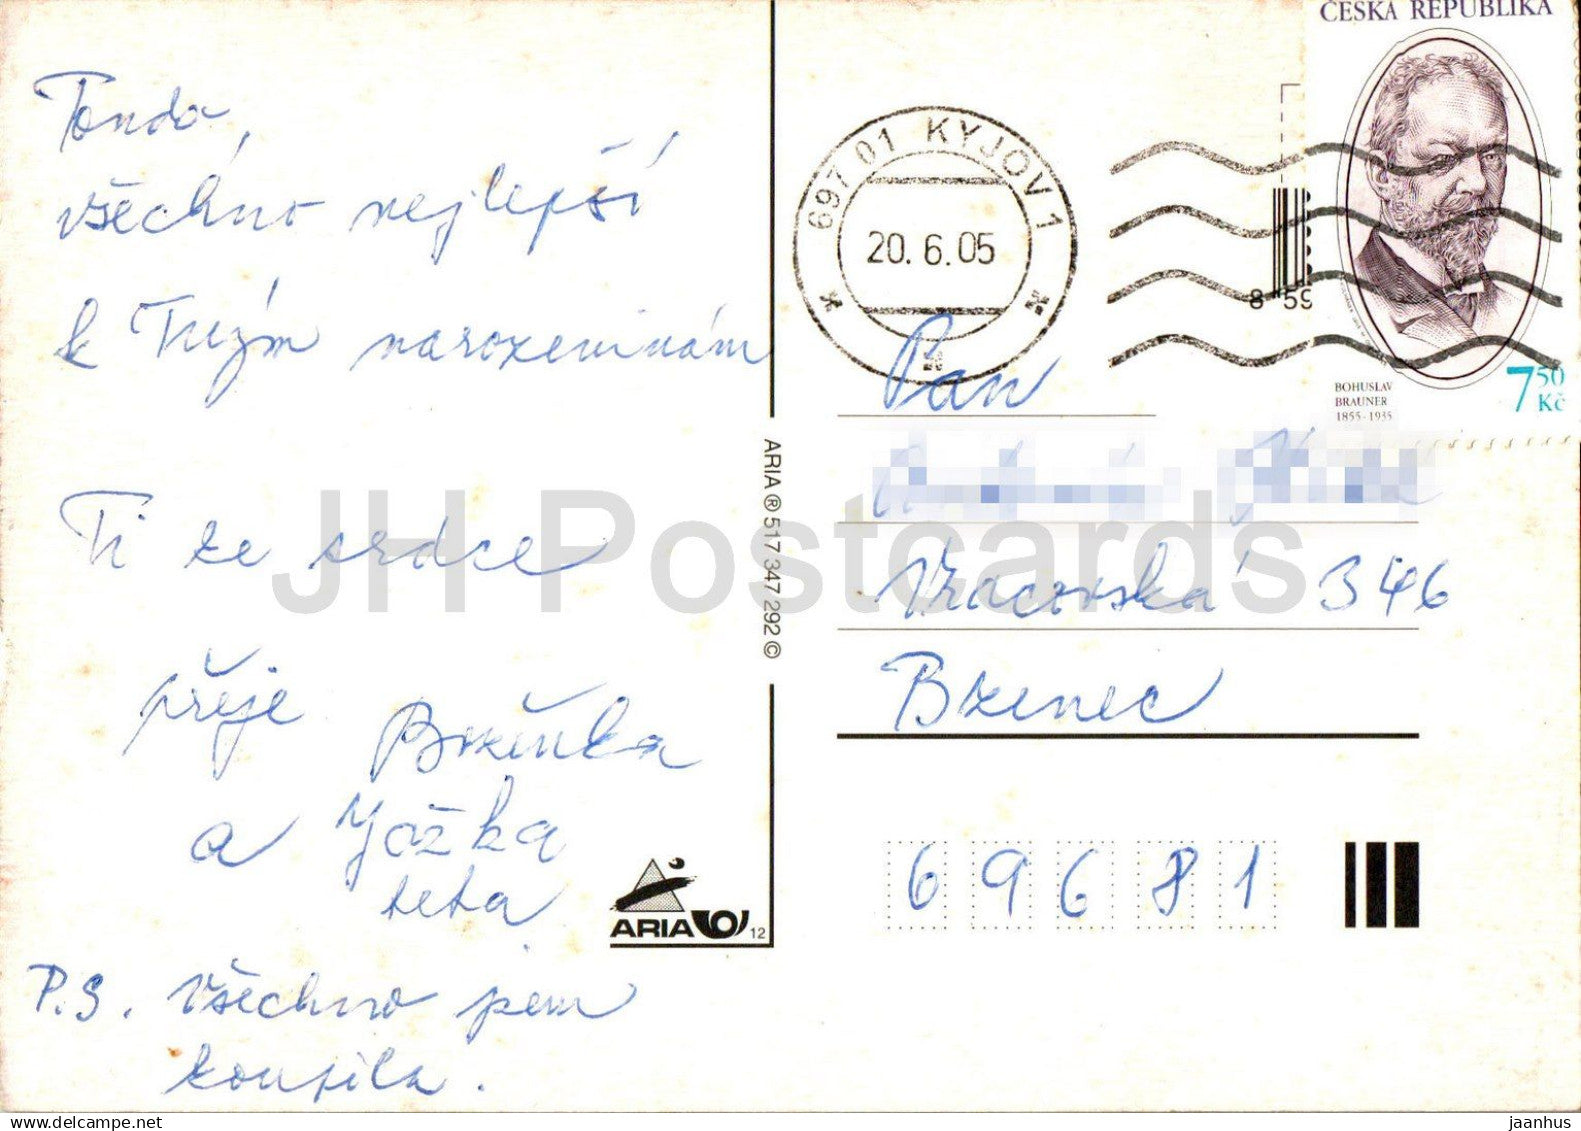 Tonda,
všechno nejlepší
k Tvým narozeninám
Ti ze srdce
přeje Boženka
a Jožka
teta
P.S. všechno jsem
koupila.
ARIA ® 517 347 292 ©
ARIA
12
697 01 KYJOV 1
20.6.05
8 59
ČESKÁ REPUBLIKA
BOHUSLAV
BRAUNER
1855-1935
7 50
Kč
Pan
Vracovská 346
Bzenec
69681
JH Postcards
jaanhus